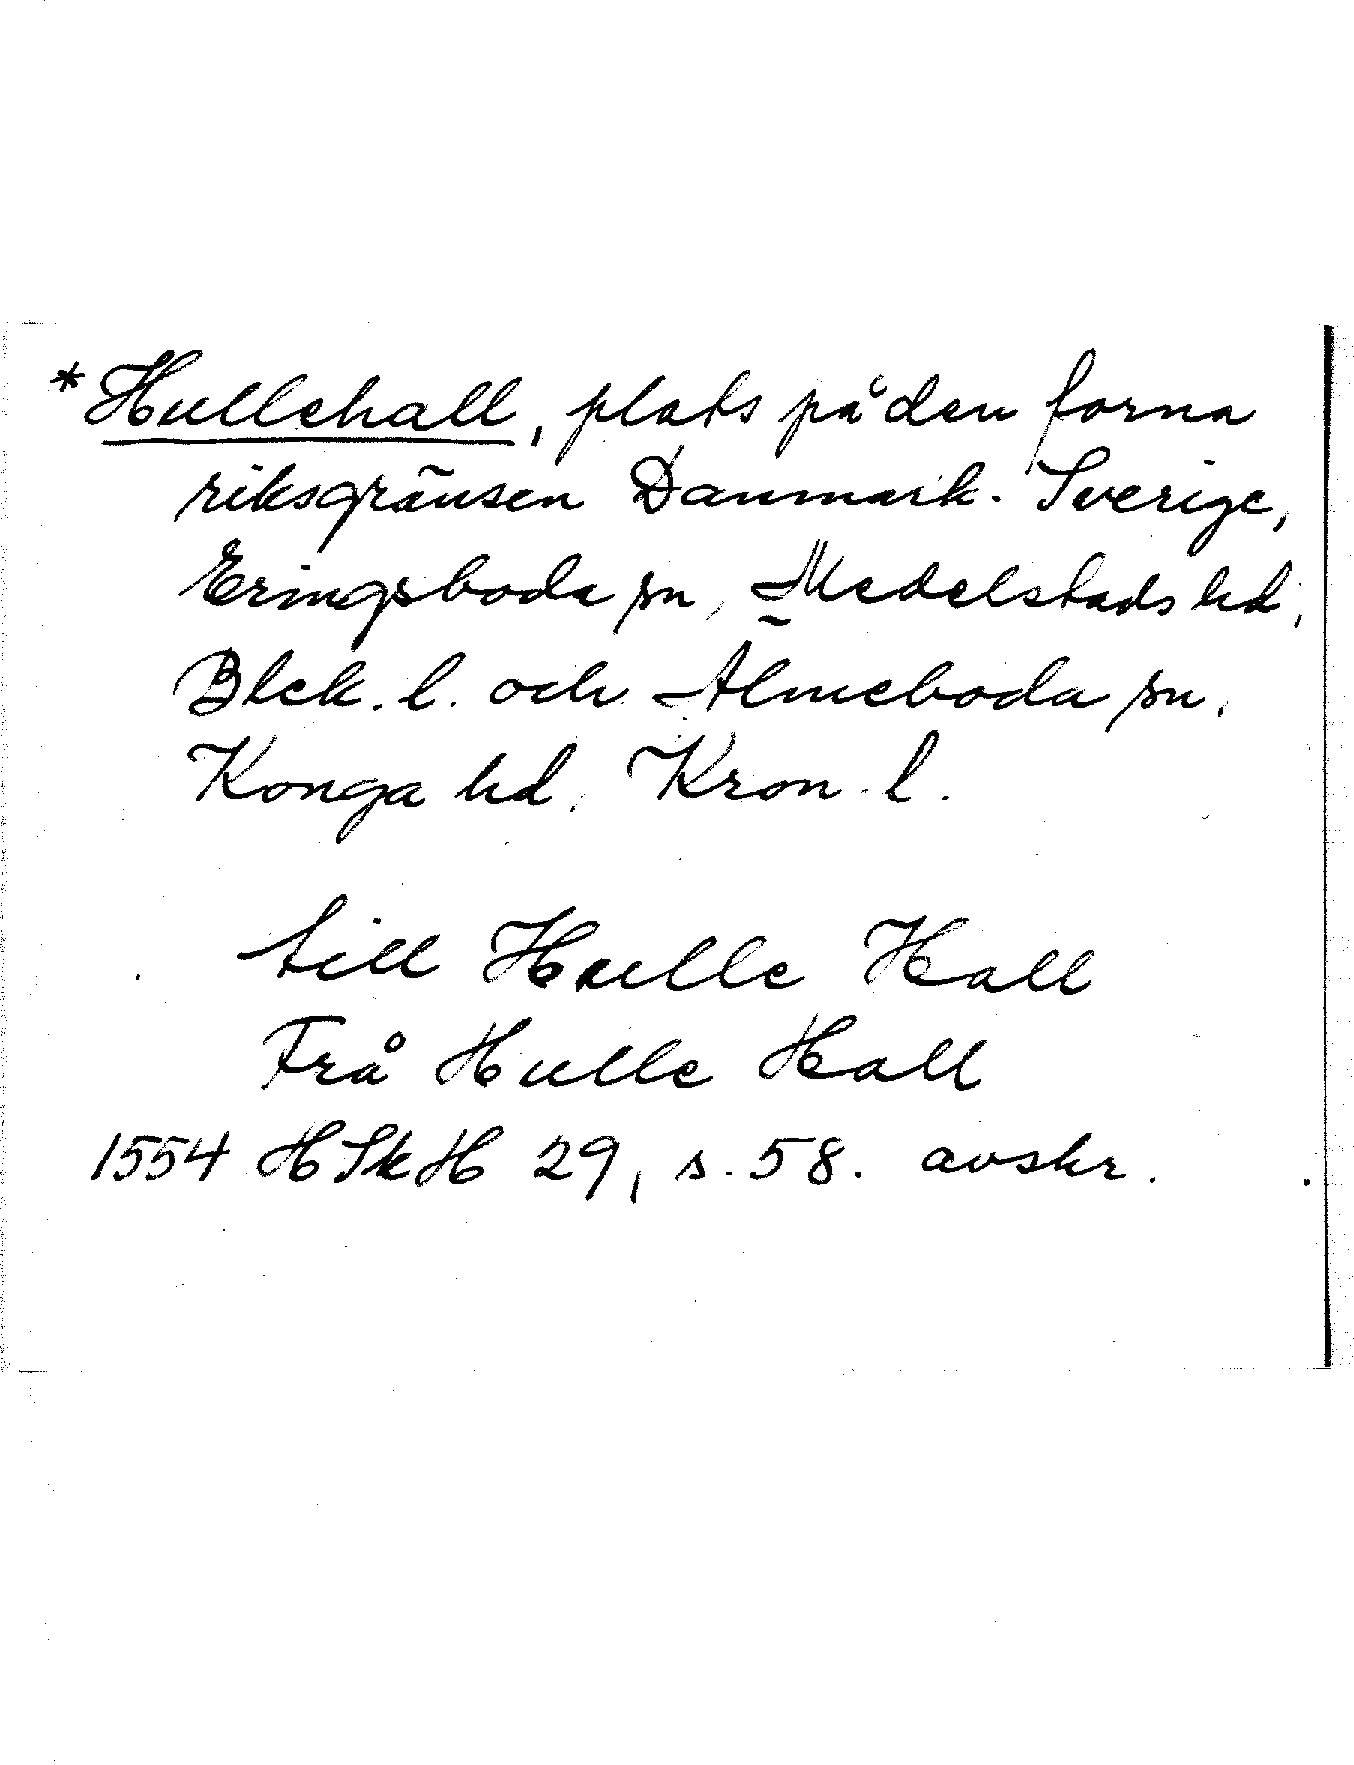 *Hullehall, plats på den forna
riksgränsen Danmark-Sverige,
Eringsboda sn, Medelstads hd,
Blek. l. och Älmeboda sn,
Konga hd, Kron. l.
till Hulle Hall
Frå Hulle Hall
1554 HSkH 29, s. 58. avskr.